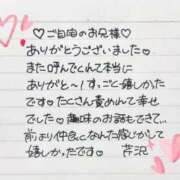 ♡ご自宅のお兄様♡
ありがとうございました♡
また呼んでくれて本当に
ありがと〜!す。ごく嬉しかった
ですたくさん責めれて幸せ
でした♡趣味のお話もできて…
前より仲良くなれた感じがして
嬉しかったです♡ 芹沢